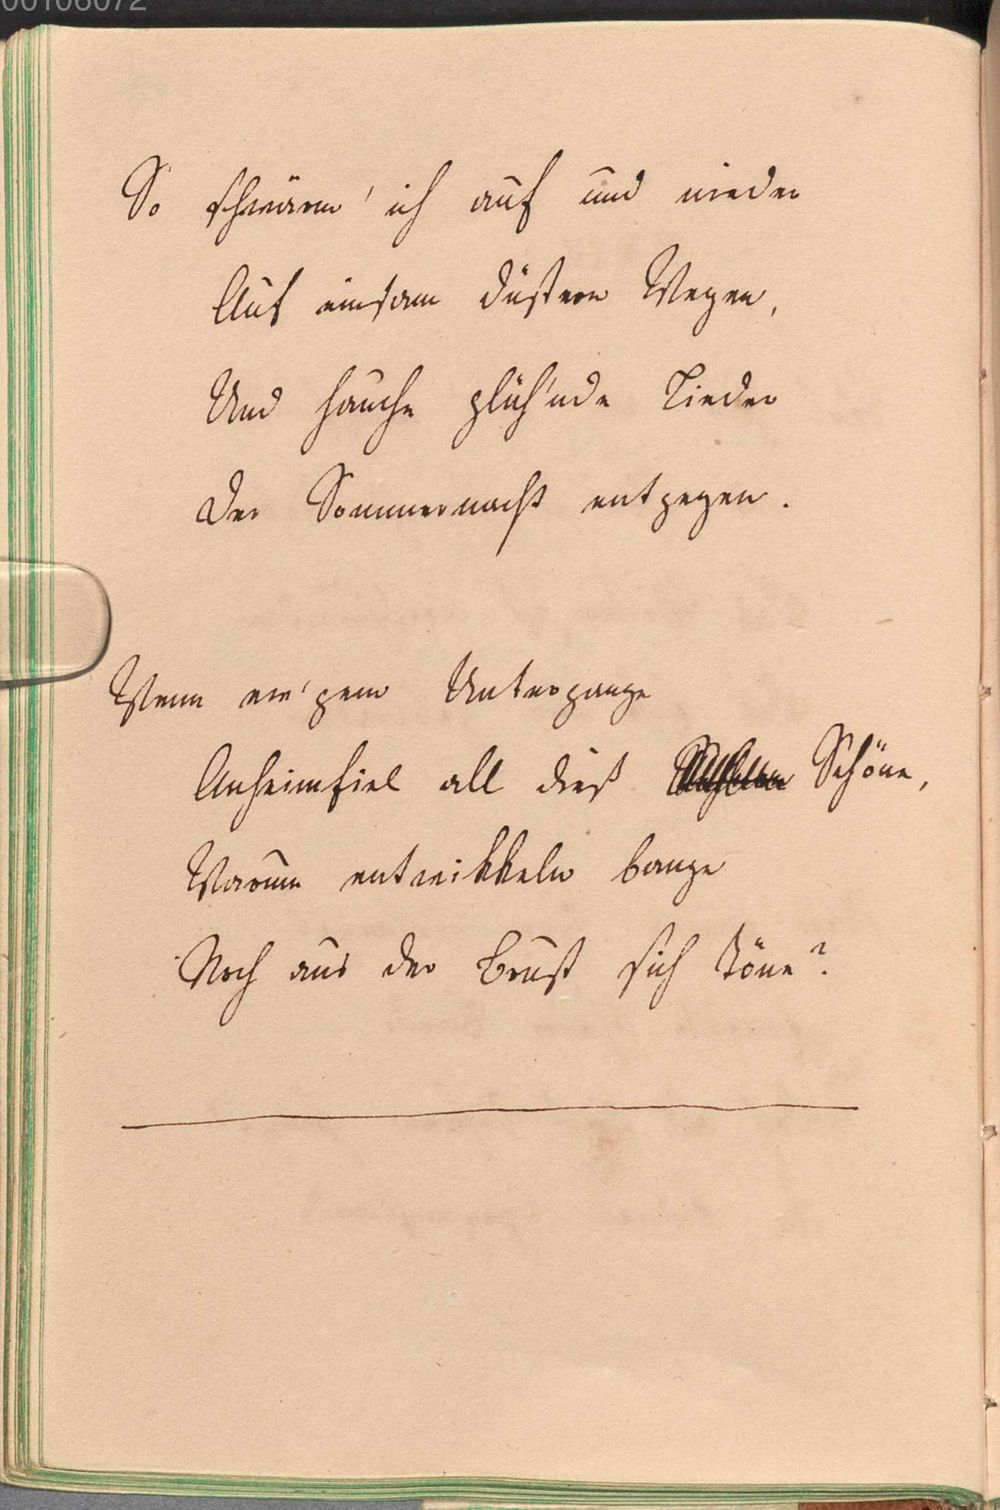 00106072
So schwärm' ich auf und nieder
Auf einsam düstern Wegen,
Und hauche glüh'nde Lieder
Der Sommernacht entgegen.
Wenn ew'gem Untergange
Anheimfiel all dieß Schöne,
Warum entwikkeln bange
Noch aus der Brust sich Töne?